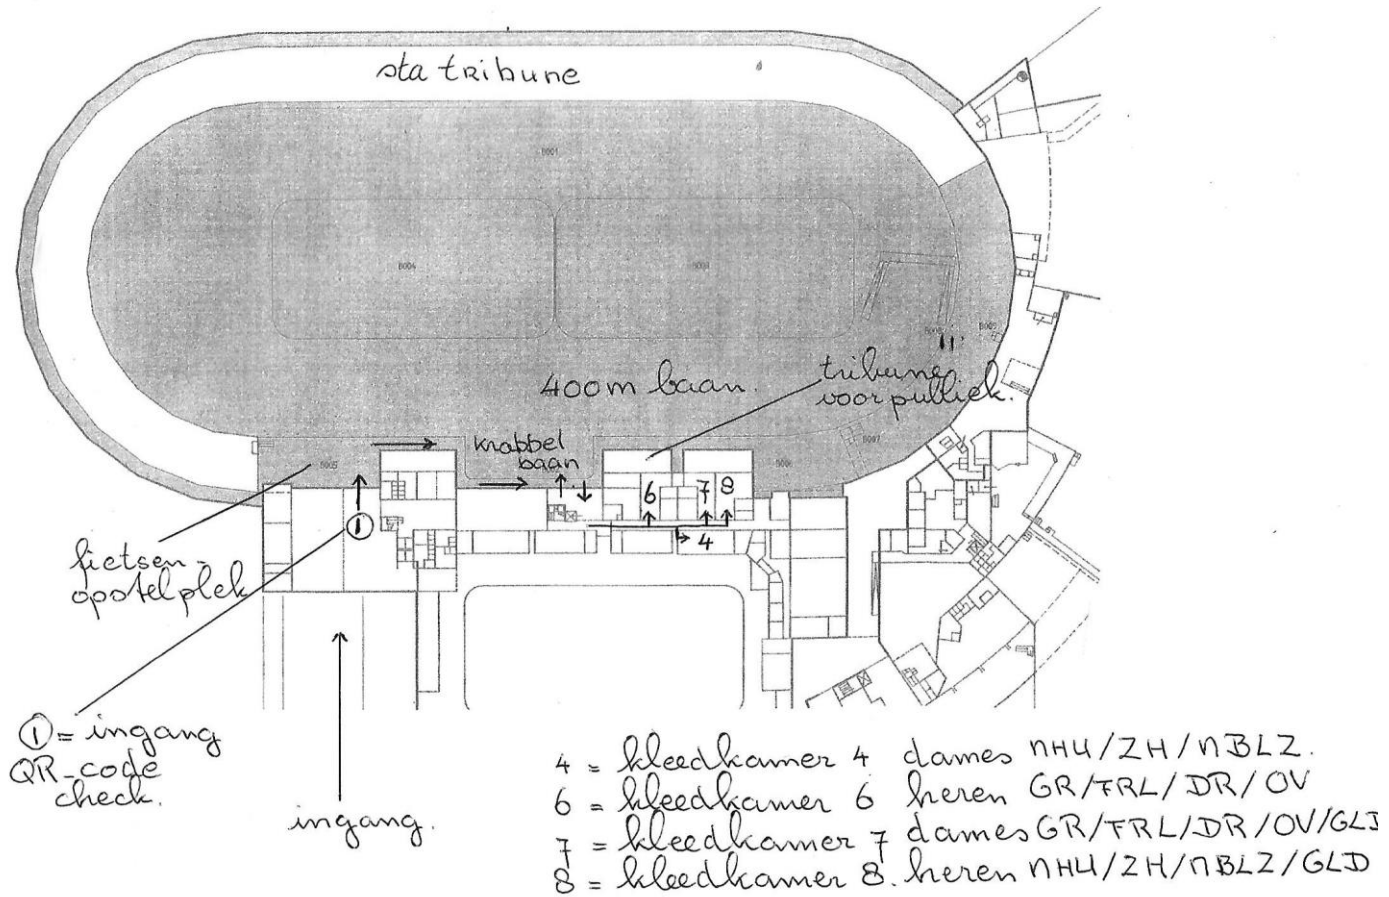 sta tribune
B001
B004
400m baan.
tribune
voor publiek.
B005
B007
knabbel
baan
B005
6 7 8
4
1
fietsen-
opstelplek
① = ingang
QR-code
check.
ingang.
4 = kleedkamer 4 dames NHU/ZH/NBLZ.
6 = kleedkamer 6 heren GR/FRL/DR/OV
7 = kleedkamer 7 dames GR/FRL/DR/OV/GLD
8 = kleedkamer 8. heren NHU/ZH/NBLZ/GLD